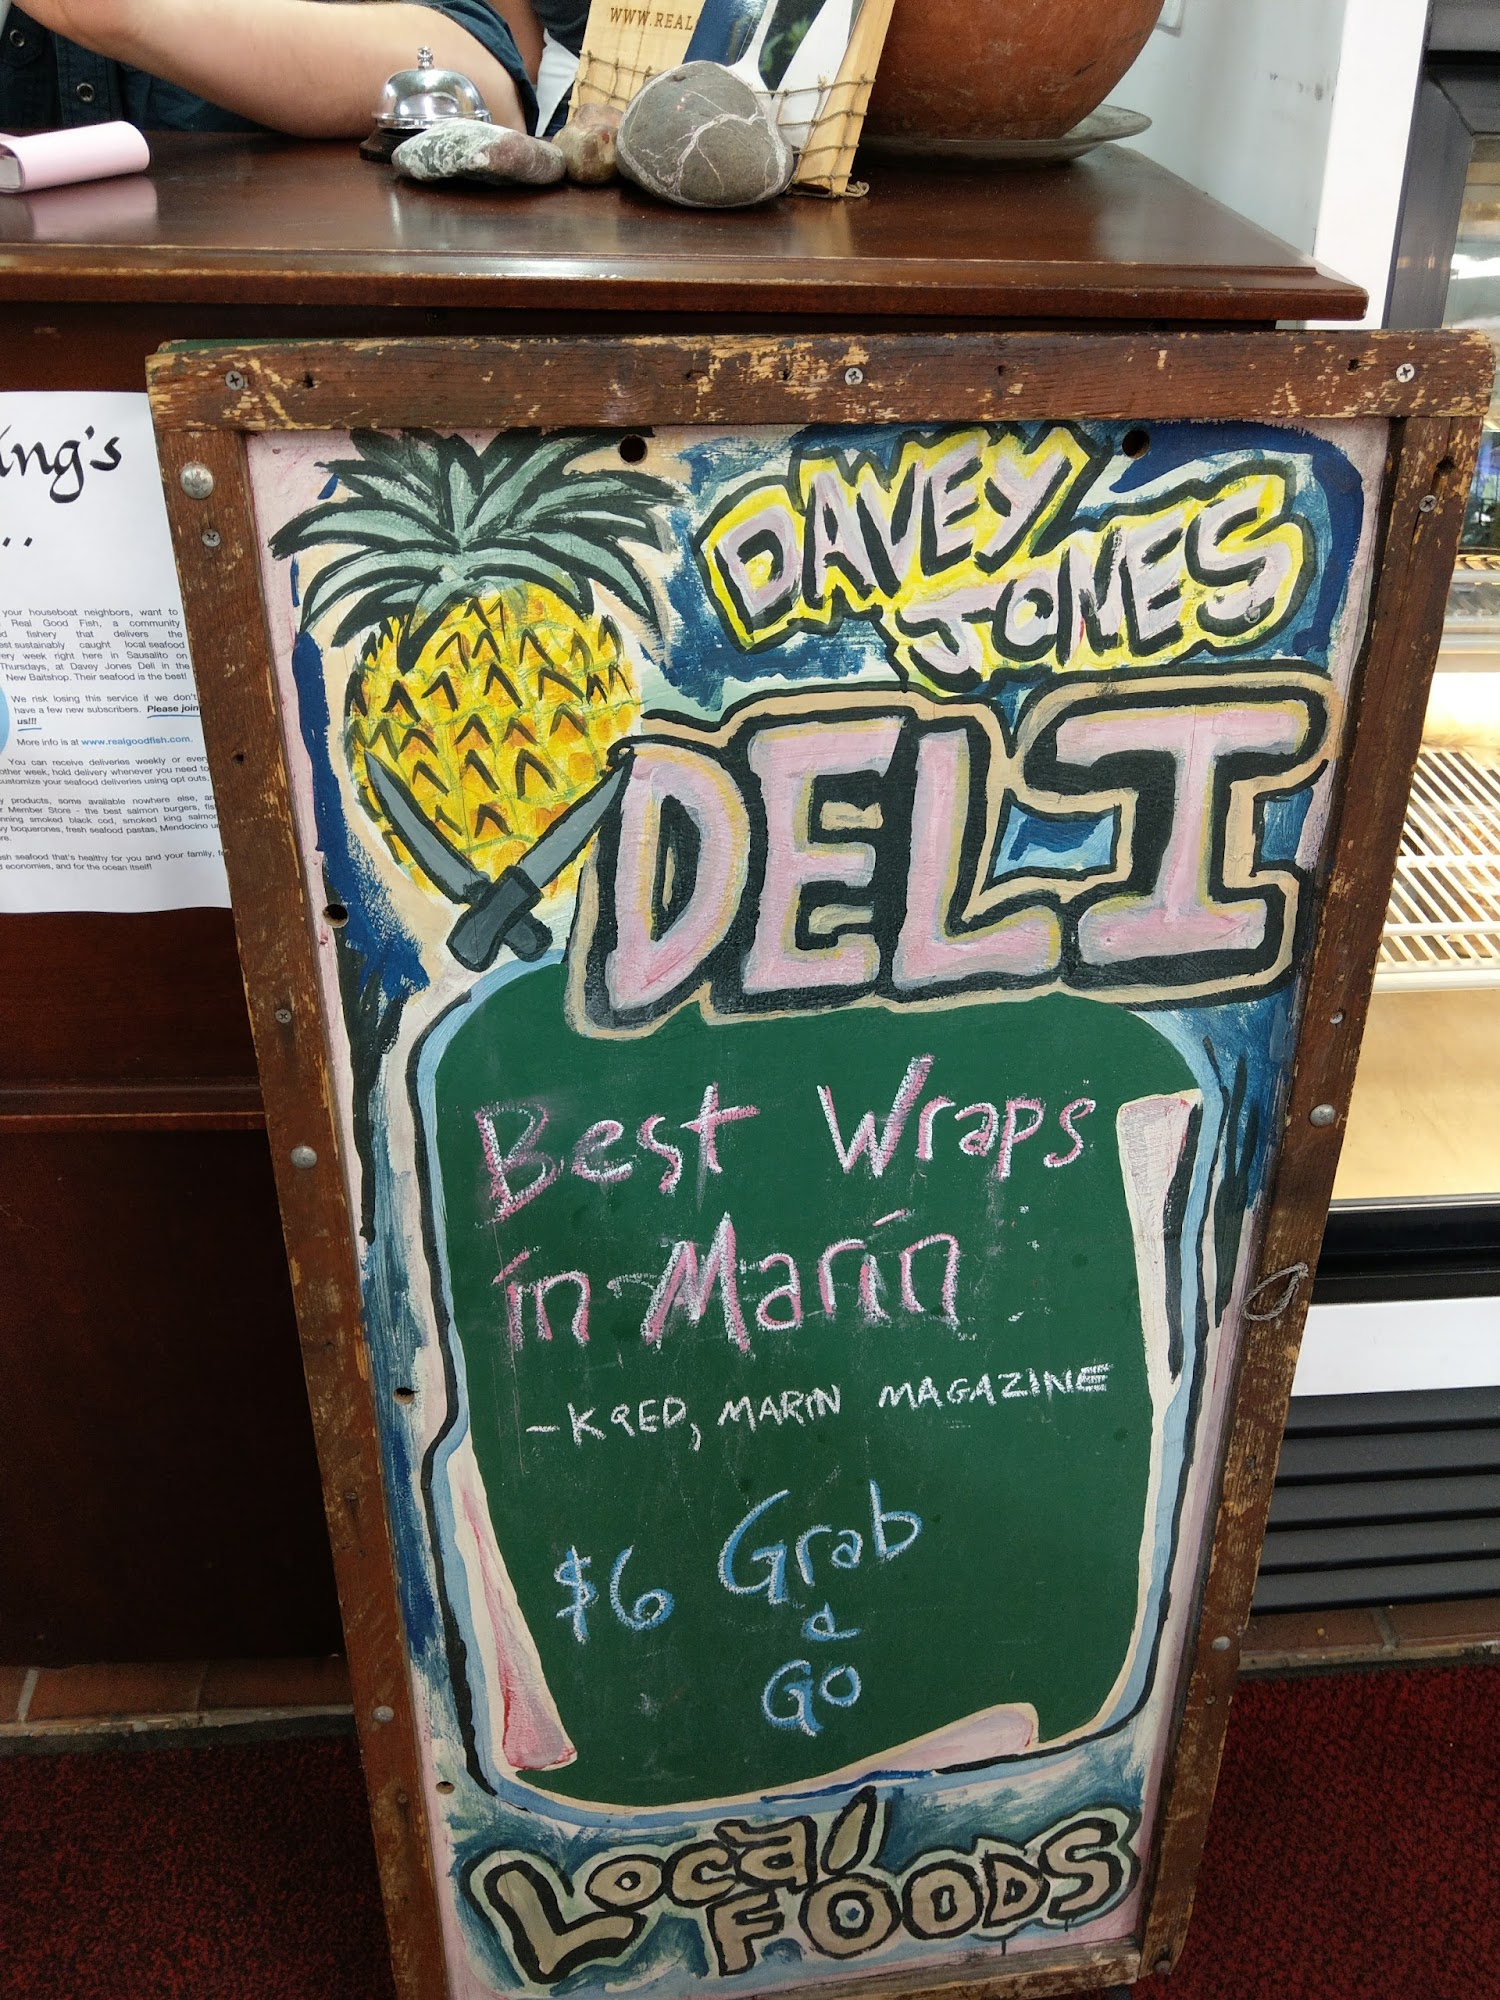 WWW.REAL
ing's
..
your houseboat neighbors, want to
Real Good Fish, a community
fishery that delivers the
sustainably caught local seafood
week, right here in Sausalito on
Thursdays, at Davey Jones Deli in the
New Baitshop. Their seafood is the best!
We risk losing this service if we don't
have a few new subscribers. Please join
us!!!
More info is at www.realgoodfish.com.
You can receive deliveries weekly or every
other week, hold delivery whenever you need to
customize your seafood deliveries using opt outs.
products, some available nowhere else,
Member Store - the best salmon burgers,
smoked black cod, smoked king salmon
boquerones, fresh seafood pastas, Mendocino
seafood that's healthy for you and your family,
economies, and for the ocean itself!
DAVEY
JONES
DELI
Best Wraps
in Marin
-KQED, MARIN MAGAZINE
$6 Grab
a
GO
Local
FOODS